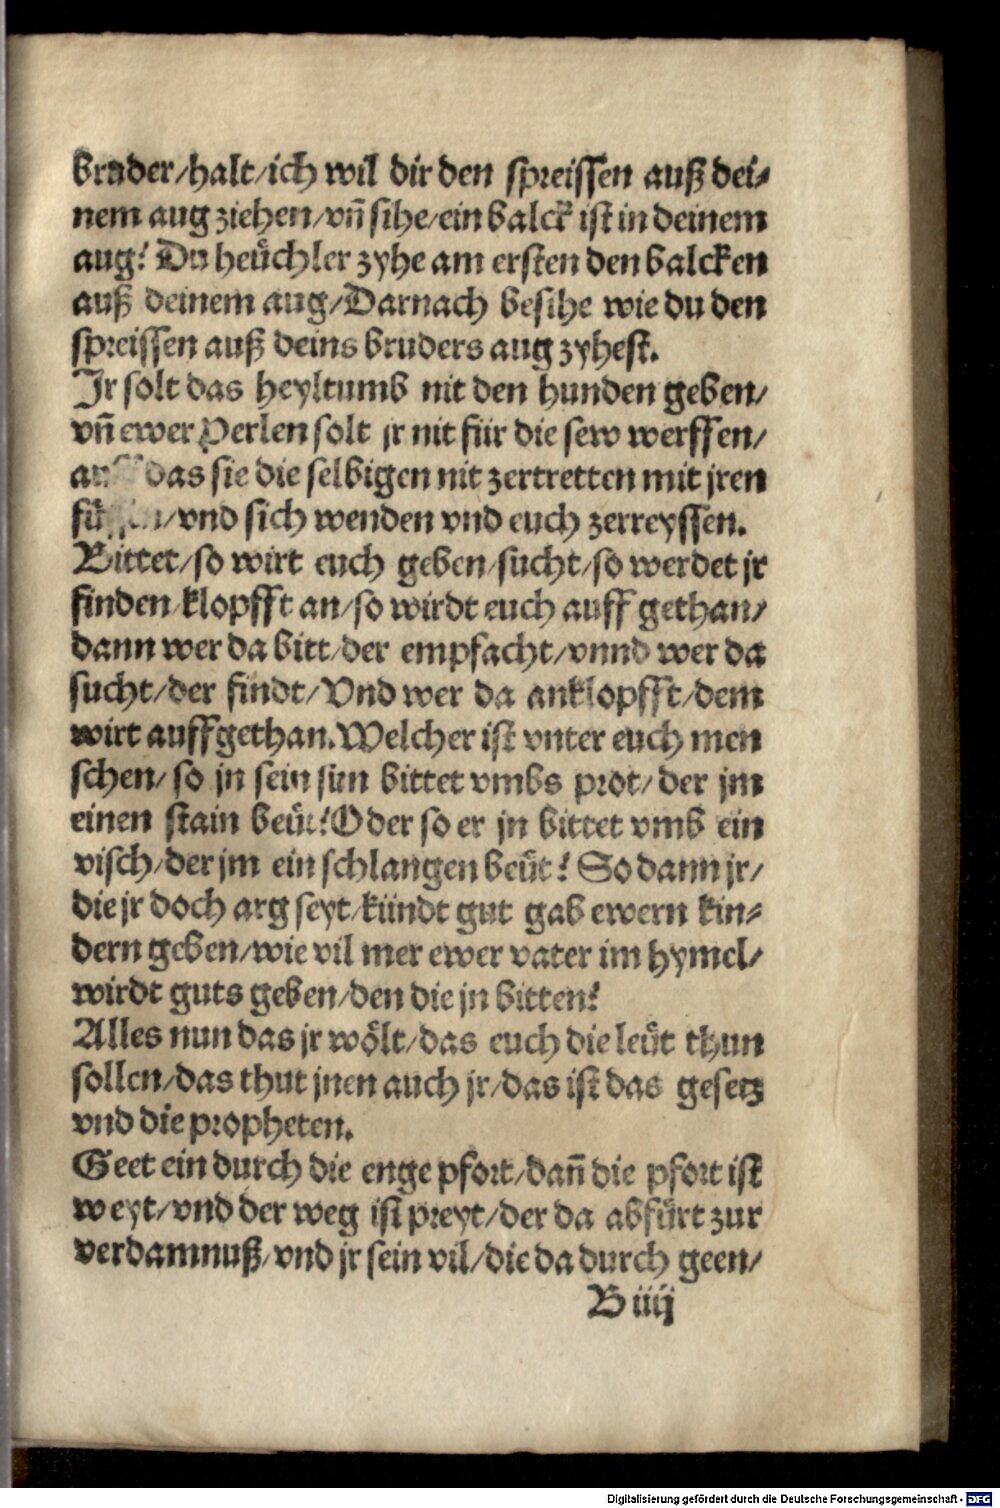 bruder/halt/ich wil dir den spreissen auß dei⸗
nem aug ziehen/vñ sihe/ein balck ist in deinem
aug? Du heüchler zyhe am ersten den balcken
auß deinem aug/Darnach besihe wie du den
spreissen auß deins bruders aug zyhest.
Jr solt das heyltumb nit den hunden geben/
vñ ewer Perlen solt jr nit für die sew werffen/
auff das sie die selbigen nit zertretten mit jren
füssen/vnd sich wenden vnd euch zerreyssen.
Bittet/so wirt euch geben/sucht/so werdet jr
finden/klopfft an/so wirdt euch auff gethan/
dann wer da bitt/der empfacht/vnnd wer da
sucht/der findt/Vnd wer da anklopfft/dem
wirt auffgethan. Welcher ist vnter euch men
schen/so jn sein sun bittet vmbs prot/der jm
einen stain beüt? Oder so er jn bittet vmb ein
visch/der jm ein schlangen beüt? So dann jr/
die jr doch arg seyt/kündt gut gab ewern kin⸗
dern geben/wie vil mer ewer vater im hymel/
wirdt guts geben/den die jn bitten?
Alles nun das jr wölt/das euch die leüt thun
sollen/das thut jnen auch jr/das ist das gesetz
vnd die propheten.
Geet ein durch die enge pfort/dañ die pfort ist
weyt/vnd der weg ist preyt/der da abfürt zur
verdamnuß/vnd jr sein vil/die da durch geen/
B iiij
Digitalisierung gefördert durch die Deutsche Forschungsgemeinschaft - DFG